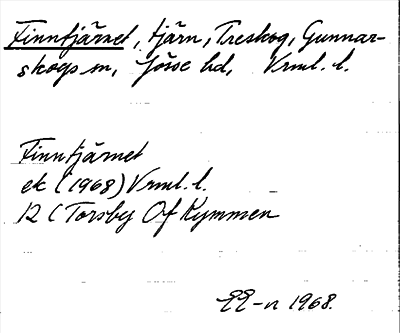 Finntjärnet, tjärn, Treskog, Gunnar-
skogs sn, Jösse hd, Vrml. l.
Finntjärnet
ek (1968) Vrml. l.
12 C Torsby Of Kymmen
1968.